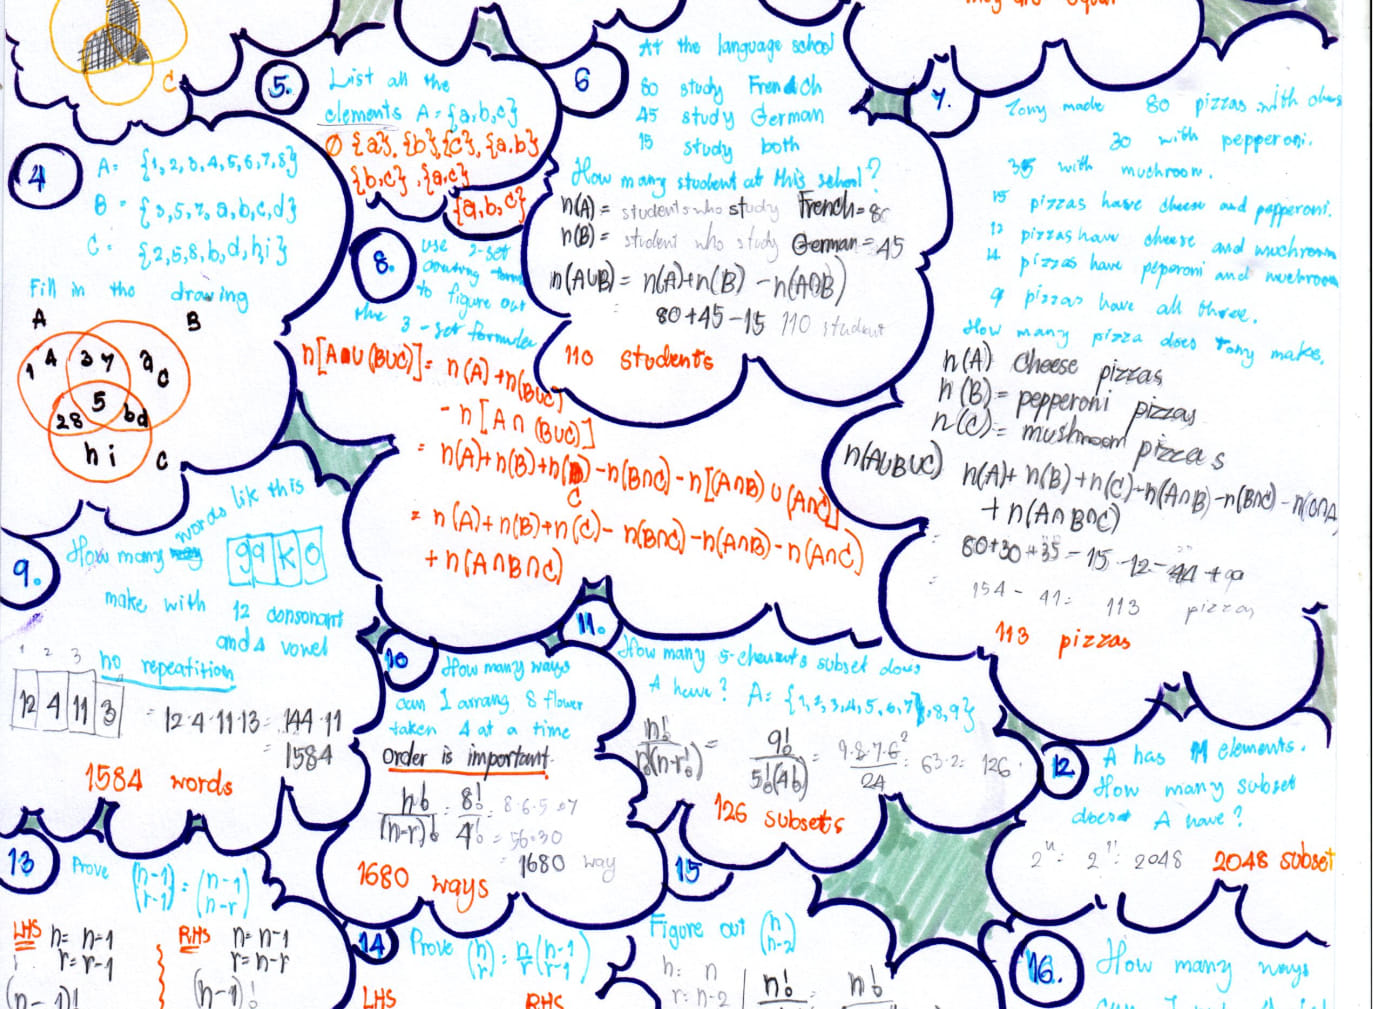 they are equal
C
4
A = {1,2,3,4,5,6,7,8}
B = {3,5,7,a,b,c,d}
C = {2,5,8,b,d,h,i}
Fill in the drawing
A
B
1 4 3 7 a c
5
2 8 b d
h i
C
5.
List all the
elements A = {a,b,c}
∅ {a}, {b}, {c}, {a,b}
{b,c}, {a,c}
{a,b,c}
6
At the language school
80 study French
45 study German
15 study both
How many student at this school?
n(A) = students who study French = 80
n(B) = student who study German = 45
n(A∪B) = n(A)+n(B) - n(A∩B)
80+45-15 110 student
110 students
7.
Tony made 80 pizzas with chees
30 with pepperoni.
35 with muchroom.
15 pizzas have cheese and pepperoni.
12 pizzas have cheese and muchroom
14 pizzas have peperoni and muchroom
9 pizzas have all three.
How many pizza does Tony make.
n(A) Cheese pizzas
n(B) = pepperoni pizzas
n(C) = mushroom pizzas
n(A∪B∪C) n(A)+ n(B)+n(C)-n(A∩B)-n(B∩C)-n(C∩A
+ n(A∩B∩C)
= 80+30+35-15-12-14+9
= 154 - 41 = 113 pizzas
113 pizzas
8.
use 2-set
counting
to figure out
the 3-set formular
n[A∪(B∪C)] = n(A)+n(B∪C)
- n[A∩(B∪C)]
= n(A)+n(B)+n(C)-n(B∩C)-n[(A∩B)∪(A∩C)]
= n(A)+n(B)+n(C)-n(B∩C)-n(A∩B)-n(A∩C)
+n(A∩B∩C)
9.
How many words like this
g a K o
make with 12 consonant
and 4 vowel
no repeatition
1 2 3
12 4 11 3
= 12·4·11·13 = 144·11
= 1584
1584 words
10
How many ways
can I arrang 8 flower
taken 4 at a time
Order is important.
n!/(n-r)! = 8!/4! = 8·6·5·7
= 56·30
= 1680 way
1680 ways
11.
How many 5-elements subset does
A have? A = {1,2,3,4,5,6,7,8,9}
n!/r!(n-r!) = 9!/5!(4!) = 9·8·7·6²/24 = 63·2 = 126
126 subsets
12
A has 11 elements.
How many subset
does A have?
2ⁿ = 2¹¹ = 2048 2048 subset
13
Prove (n-1 r-1) = (n-1 n-r)
LHS n = n-1
r = r-1
(n-1)!
RHS n = n-1
r = n-r
(n-1)!
14
Prove (n r) = n/r (n-1 r-1)
LHS RHS
15
Figure out (n n-2)
n = n
r = n-2
n! = n!
16.
How many ways